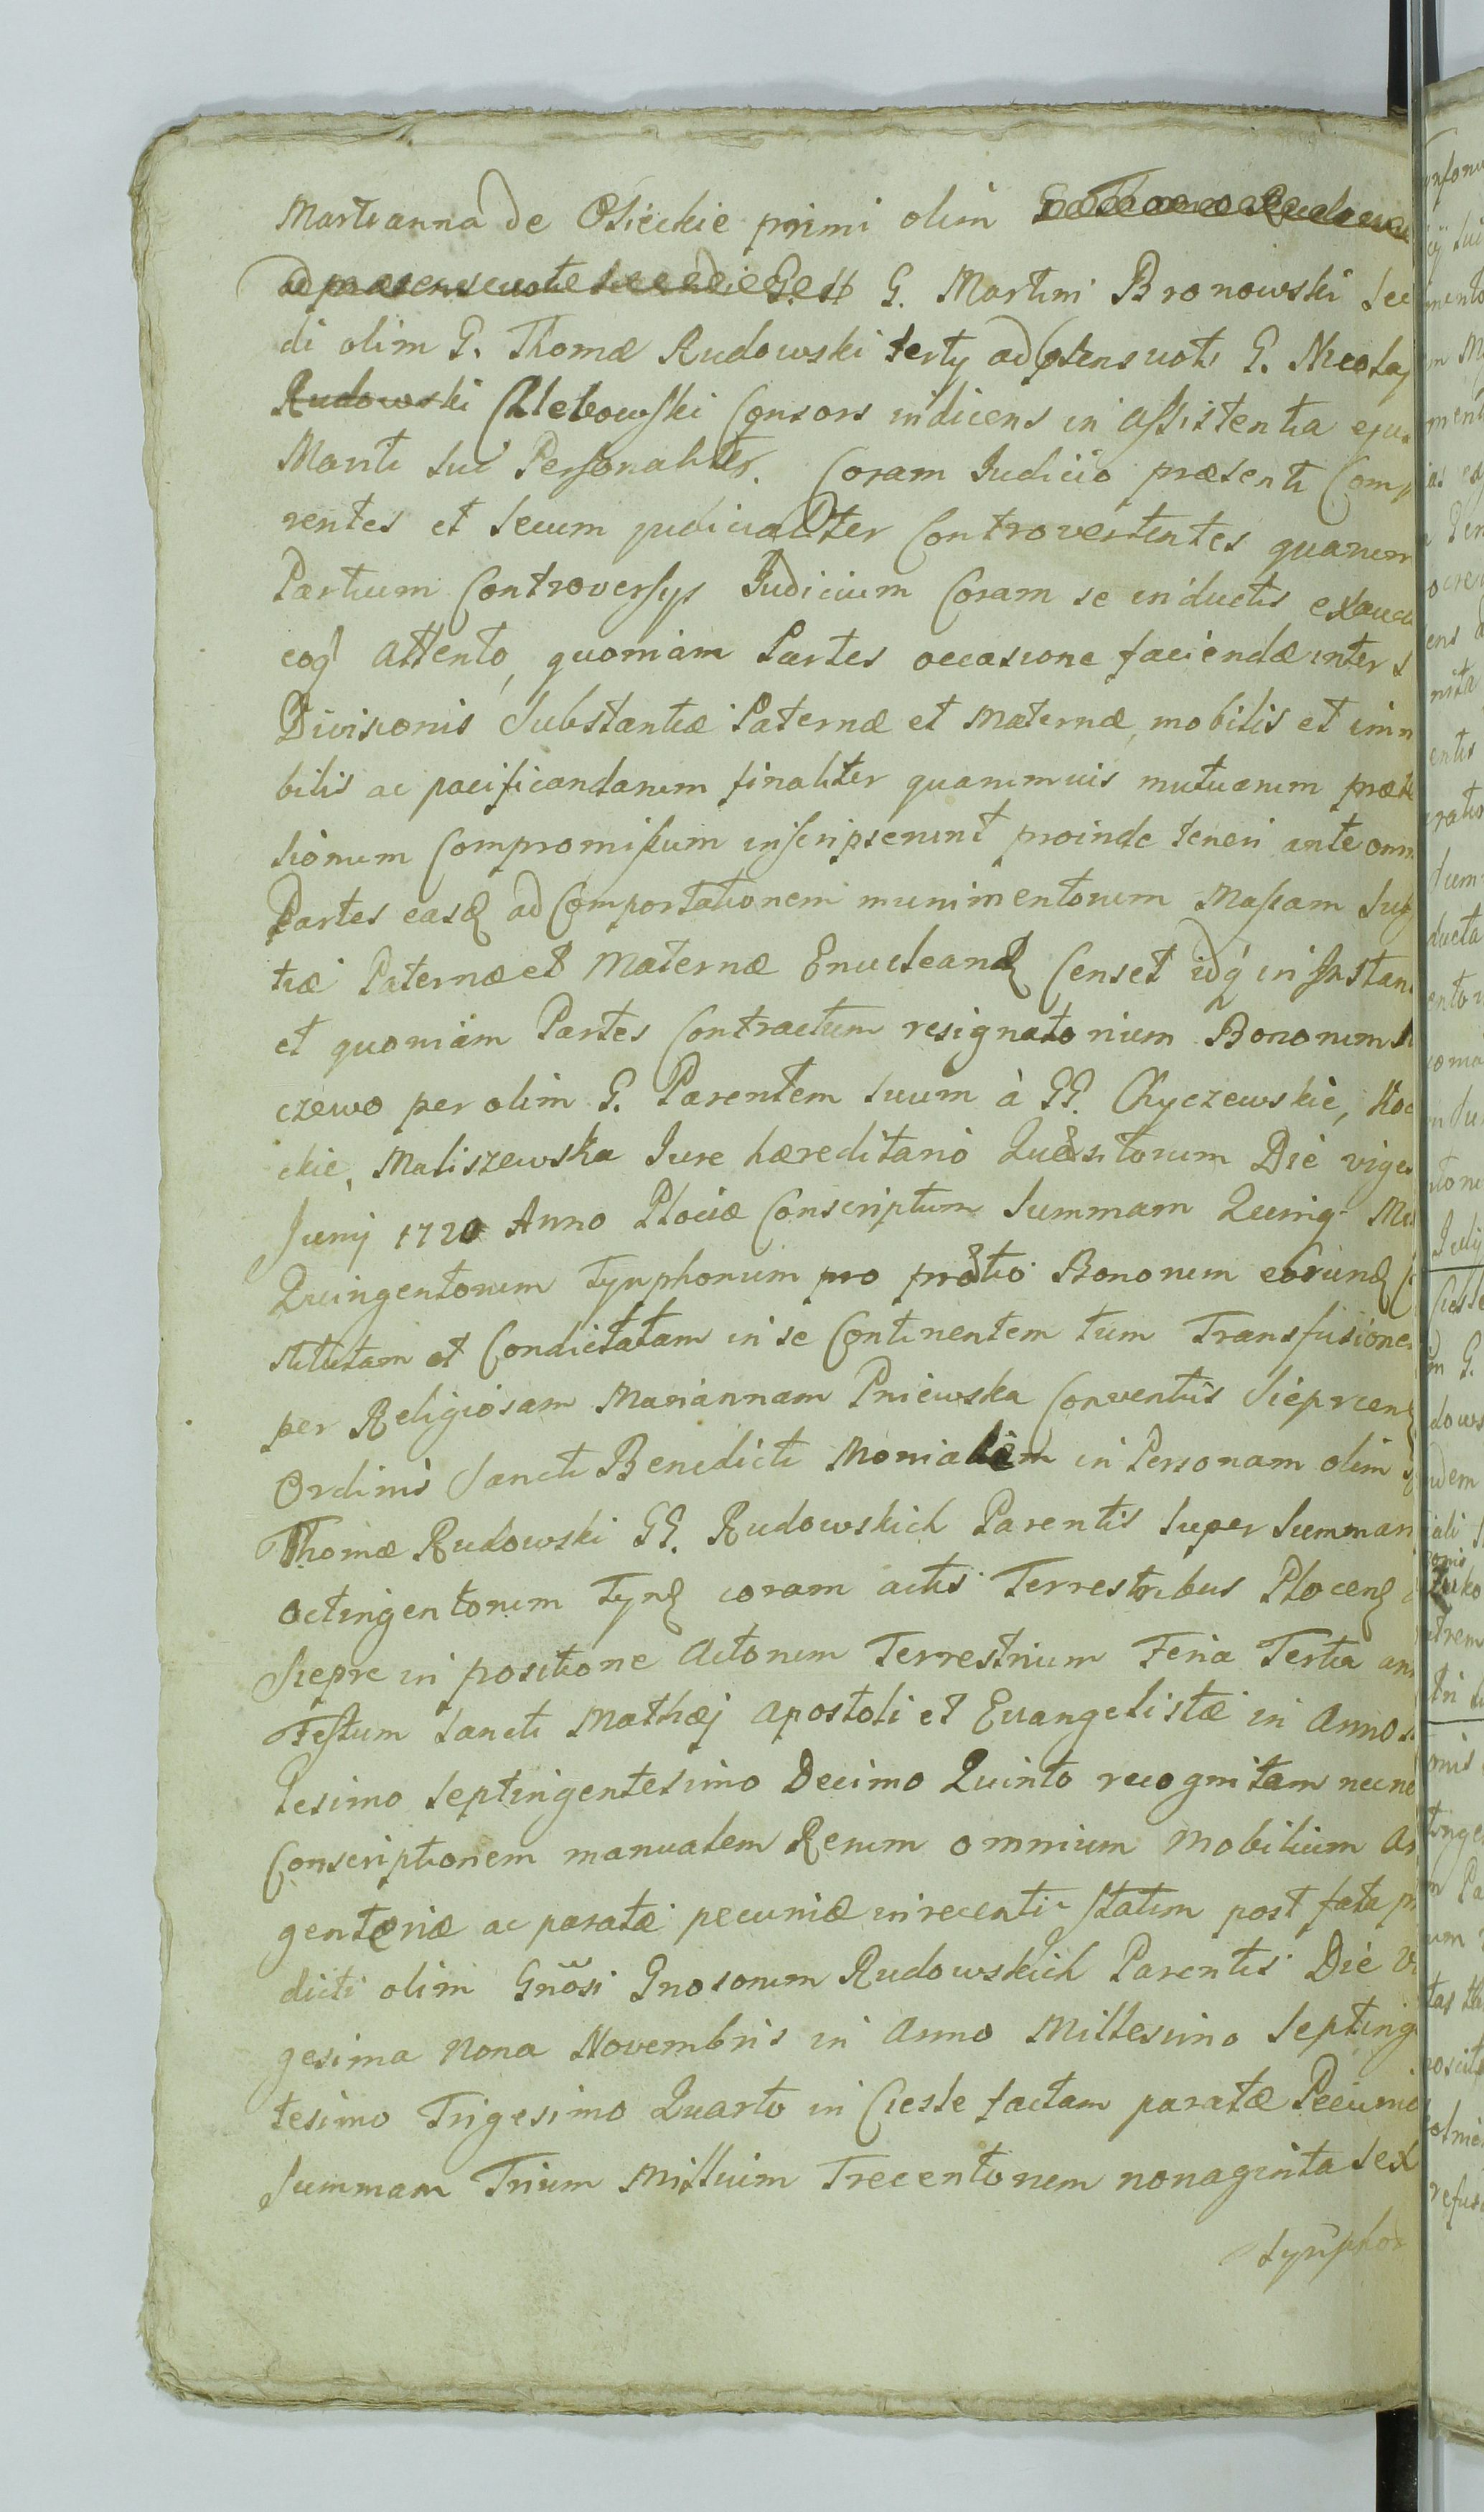 Marianna de Osieckie primi olim
G. Martini Bronowski Sec
di olim G. Thomæ Rudowski terty ad præsens voti G. Nicolaj
Rudowski Chlebowski Consors indicens in assistentia ejus
Mariti sui Personaliter. Coram Judicio præsenti Comp
rentes et secum judicialiter Controvertentes quarum
Partium Controversys Judicium Coram se inductis exauc
eoq attento, quoniam Partes occasione faciendæ inter s
Divisionis Substantiæ Paternæ et Maternæ, mobilis et imm
bilis ac pacificandarum finaliter quarumvis mutuarum præte
sionum Compromissum inscripserunt proinde teneri ante omn
Partes easq ad Comportationem munimentorum Massam Sub
tiæ Paternæ et Maternæ Enucleand Censet idq in Instan
et quoniam Partes Contractum resignatorium Bonorum
czewo per olim G. Parentem suum à GG. Chyczewskie, Ko
ckie, Maliszewska Jure hæreditario Quæsitorum Die viges
Junij 1720 Anno Plociæ Conscriptum Summam Quinq Mi
Quingentorum Tynphorum pro prætio Bonorum eorund
stitutam et Condictatam in se Continentem tum Transfusione
per Religiosam Mariannam Pniewska Conventus Sieprcen
Ordinis Sancti Benedicti Monialem in Personam olim
Thomæ Rudowski GG. Rudowskich Parentis Super Summam
octingentorum Tyn coram actis Terrestribus Plocen
Sieprc in positione Actorum Terrestrium Feria Tertia an
Festum Sancti Mathæj Apostoli et Evangelistæ in Anno
lesimo Septingentesimo Decimo Quinto recognitam necno
Conscriptionem manualem Rerum omnium Mobilium Ar
genteriæ ac paratæ pecuniæ in recenti statim post fata p
dicti olim Gnosi Gnosorum Rudowskich Parentis Die Vi
gesima Nona Novembris in Anno Millesimo Septing
tesimo Trigesimo Quarto in Ciesle factam paratæ Pecuniæ
Summam Trium Millium Trecentorum nonaginta Sex
Tynpho